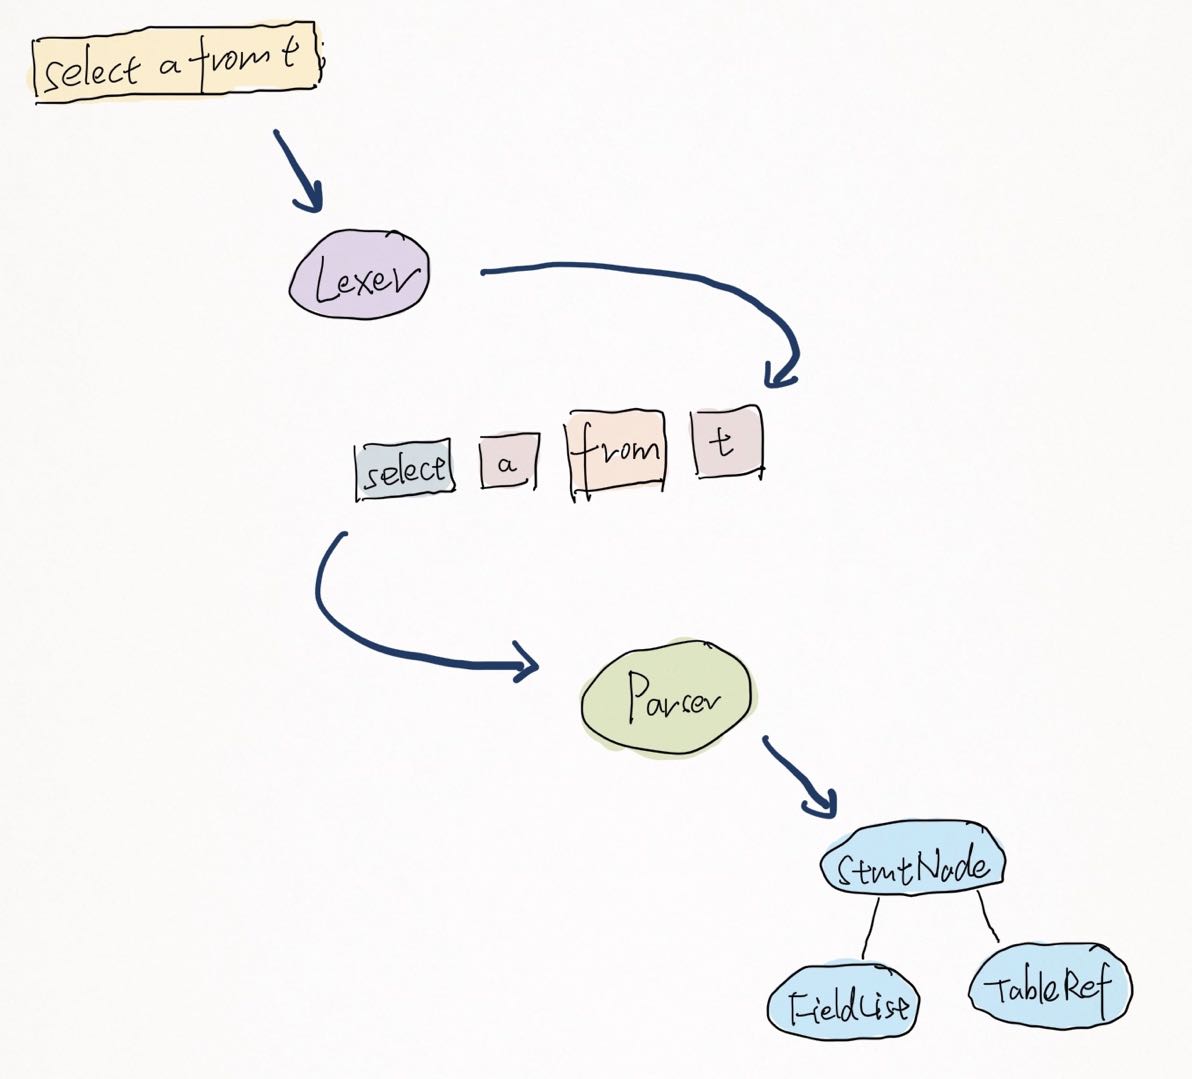 select a from t;
Lexer
select a from t
Parser
StmtNode
FieldList TableRef